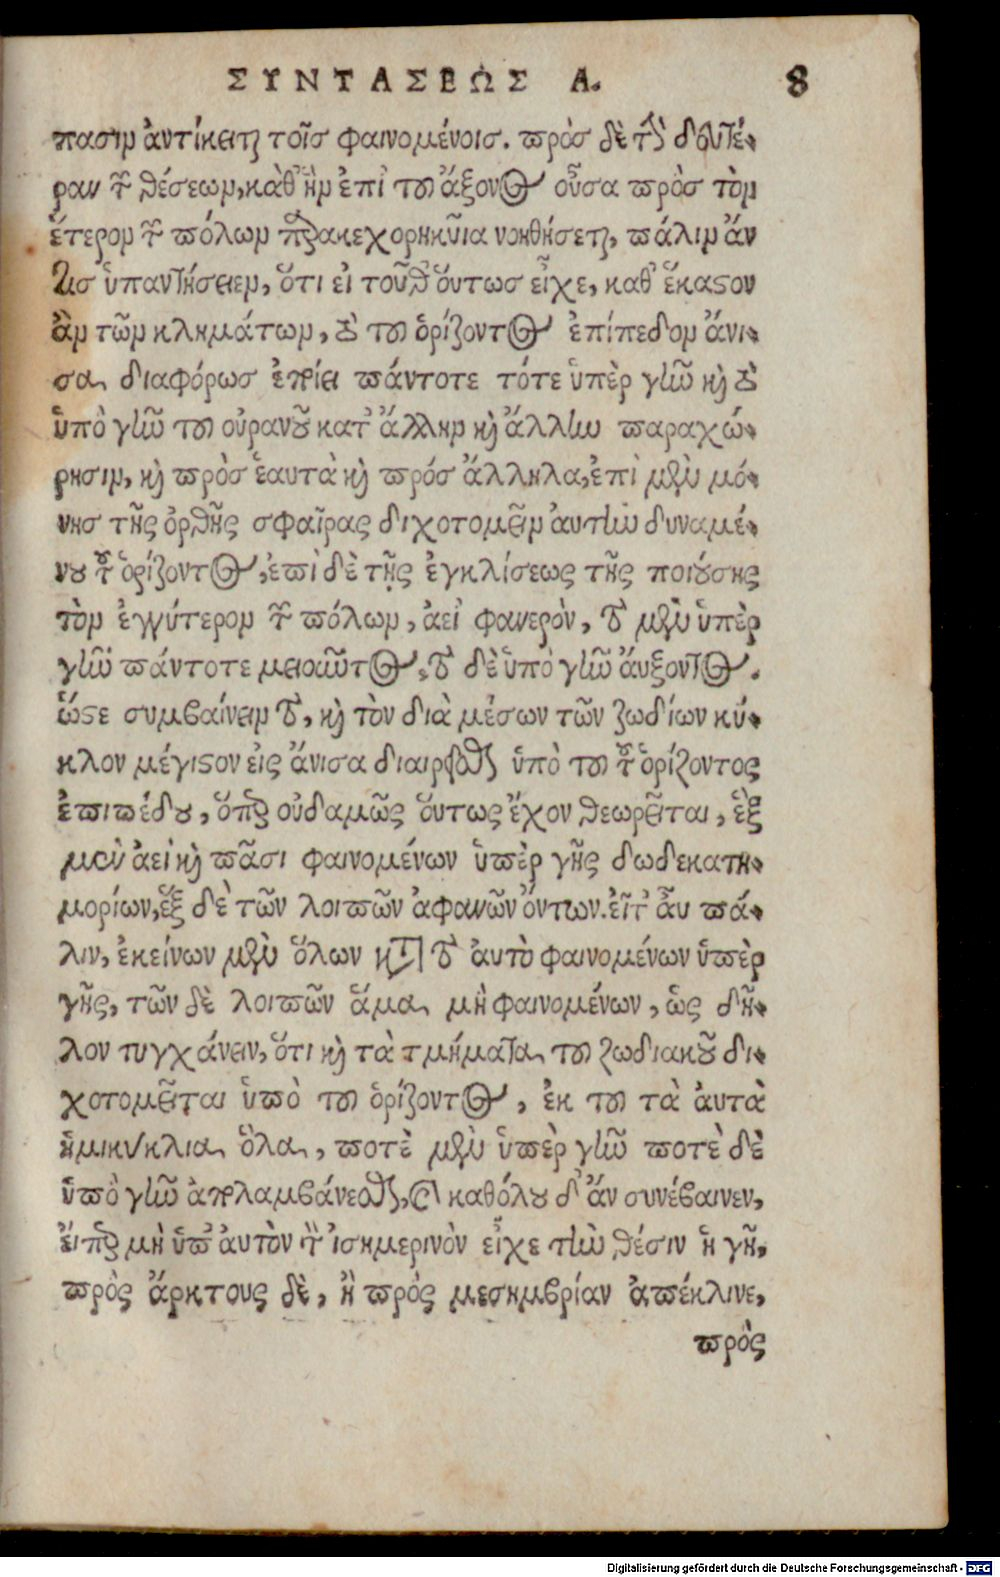 ΣΥΝΤΑΞΕΩΣ Α. 8
πασιν ἀντίκειται τοῖς φαινομένοις. πρὸς δὲ τὴν δευτέ-
ραν τῶν θέσεων, καθ' ἣν ἐπὶ τοῦ ἄξονος οὖσα πρὸς τὸν
ἕτερον τῶν πόλων παρακεχορηκῦια νοηθήσεται, πάλιν ἄν
τις ὑπαντήσειεν, ὅτι εἰ τοῦθ' ὅυτως εἶχε, καθ' ἕκαστον
ἂν τῶν κλημάτων, τὸ τοῦ ὁρίζοντος ἐπίπεδον ἄνι-
σα διαφόρως ἐποίει πάντοτε τότε ὑπὲρ γῆν καὶ τὸ
ὑπὸ γῆν τοῦ οὐρανοῦ κατ' ἄλλην καὶ ἄλλην παραχώ-
ρησιν, καὶ πρὸς ἑαυτὰ καὶ πρός ἄλληλα, ἐπὶ μὲν μό-
νης τῆς ὀρθῆς σφαῖρας διχοτομεῖν ἀυτὴν δυναμέ-
νου τοῦ ὁρίζοντος, ἐπὶ δὲ τῆς ἐγκλίσεως τῆς ποιούσης
τὸν ἐγγύτερον τῶν πόλων, ἀεὶ φανερὸν, τὸ μὲν ὑπὲρ
γῆν πάντοτε μειοῦντος, τὸ δὲ ὑπὸ γῆν ἄυξοντος.
ὥστε συμβαίνειν τὸ, καὶ τὸν διὰ μέσων τῶν ζωδίων κύ-
κλον μέγιστον εἰς ἄνισα διαιρεῖσθαι ὑπὸ τοῦ τοῦ ὁρίζοντος
ἐπιπέδου, ὅπερ οὐδαμῶς ὅυτως ἔχον θεωρεῖται, ἓξ
μὲν ἀεὶ καὶ πᾶσι φαινομένων ὑπὲρ γῆς δωδεκατη-
μορίων, ἓξ δὲ τῶν λοιπῶν ἀφανῶν ὄντων. εἶτ' ἆυ πά-
λιν, ἐκείνων μὲν ὅλων κατὰ τὸ ἀυτὸ φαινομένων ὑπὲρ
γῆς, τῶν δὲ λοιπῶν ἅμα μὴ φαινομένων, ὡς δῆ-
λον τυγχάνειν, ὅτι καὶ τὰ τμήματα τοῦ ζωδιακοῦ δι-
χοτομεῖται ὑπὸ τοῦ ὁρίζοντος, ἐκ τοῦ τὰ ἀυτὰ
ἡμικύκλια ὅλα, ποτὲ μὲν ὑπὲρ γῆν ποτὲ δὲ
ὑπὸ γῆν ἀπολαμβάνεσθαι, καὶ καθόλου δ' ἂν συνέβαινεν,
ἔιπερ μὴ ὑπ' ἀυτὸν τὸν ἰσημερινὸν εἶχε τὴν θέσιν ἡ γῆ,
πρὸς ἄρκτους δὲ, ἢ πρὸς μεσημβρίαν ἀπέκλινε,
πρὸς
Digitalisierung gefördert durch die Deutsche Forschungsgemeinschaft - DFG